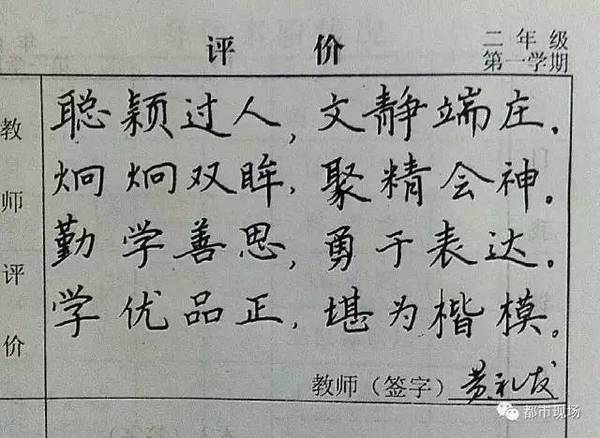 评 价
二年级
第一学期
教师评价
聪颖过人,文静端庄.
炯炯双眸,聚精会神。
勤学善思,勇于表达.
学优品正,堪为楷模。
教师(签字)黄礼发
都市现场